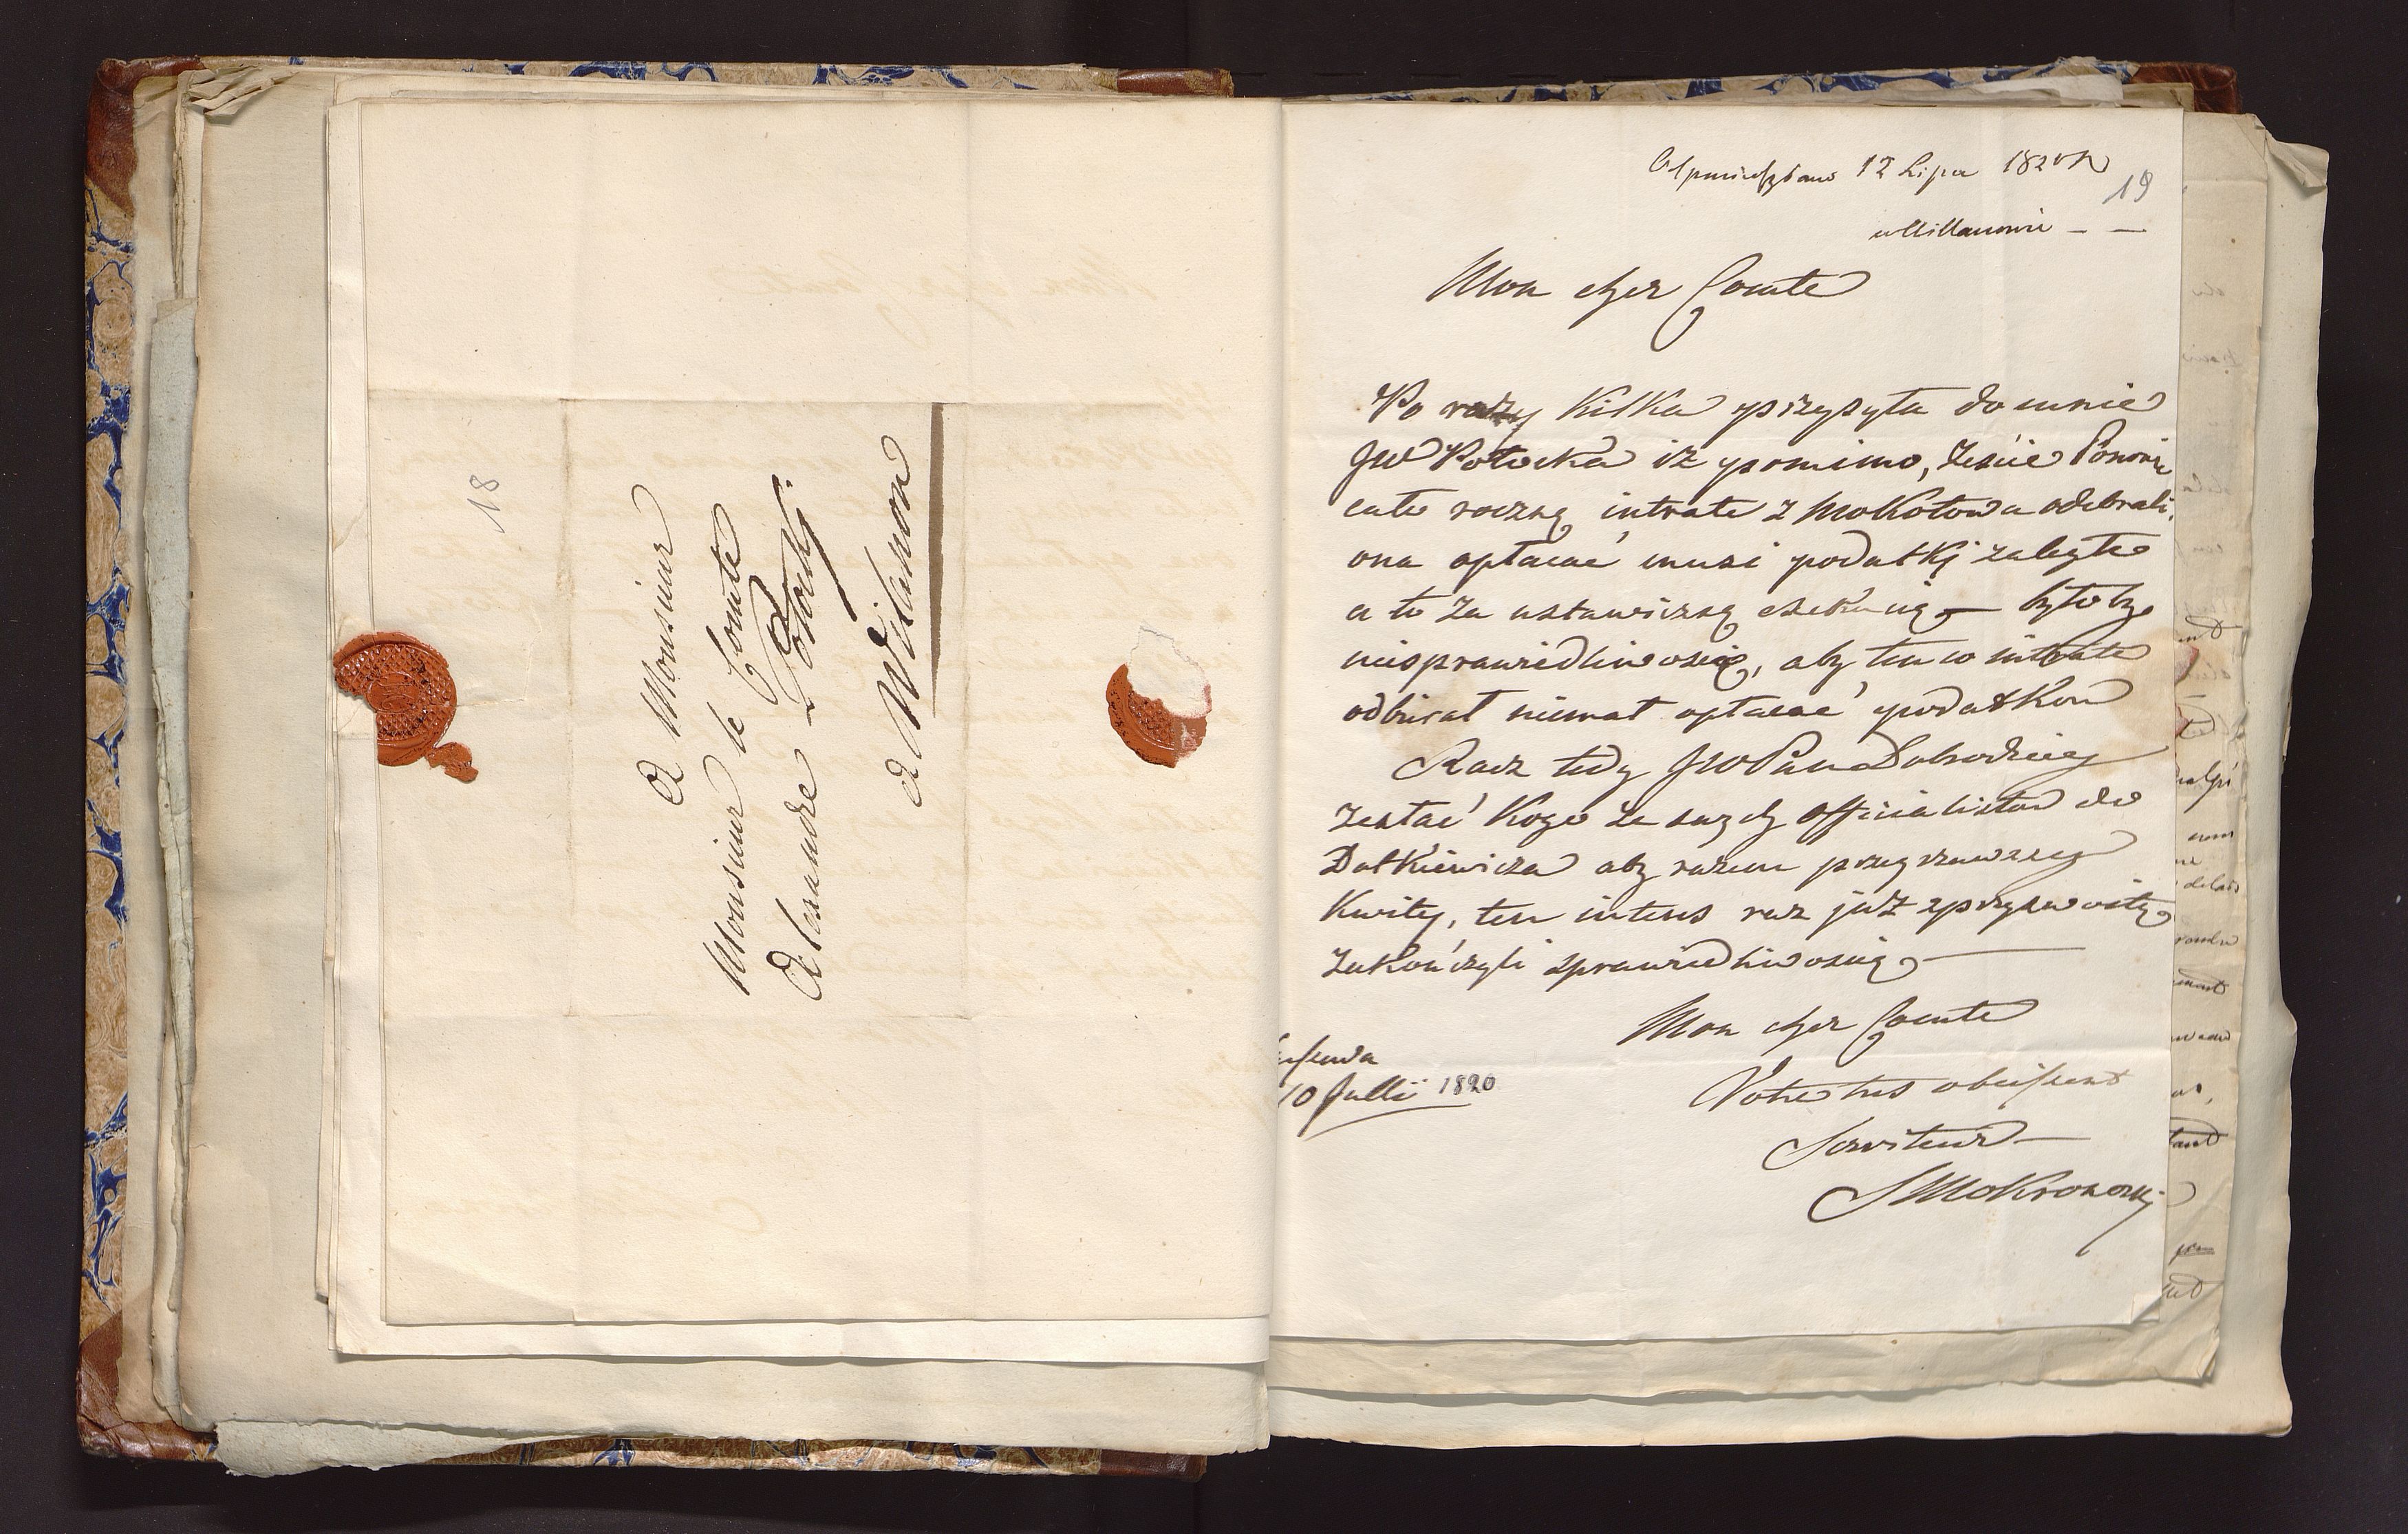 18
A Monsieur
Monsieur le Comte
Alexandre Potocki
a Wilanow
Odpowiedziano 12 Lipca 1820 R
19
w Willanowie
Mon cher Comte
Po razy Kilka przysyła do mnie
JW Potocka iż pomimo, żeście Panowie
cało roczną intratę z Mokotowa odebrali,
ona opłacać musi podatki zaległe
a to za ustawiczną exekucią — byłoby
niesprawiedliwością, aby ten co intratę
odbierał niemiał opłacać podatków
Racz tedy JW Pan Dobrodziey
zesłać Kogo ze swych officialistów do
Dutkiewicza aby razem przeyrzawszy
Kwity, ten interes raz już z przyzwoitą
zakończyli sprawiedliwością —
Mon cher Comte
10 Julii 1820
Votre tres obeissant
Serviteur —
S Mokronoski